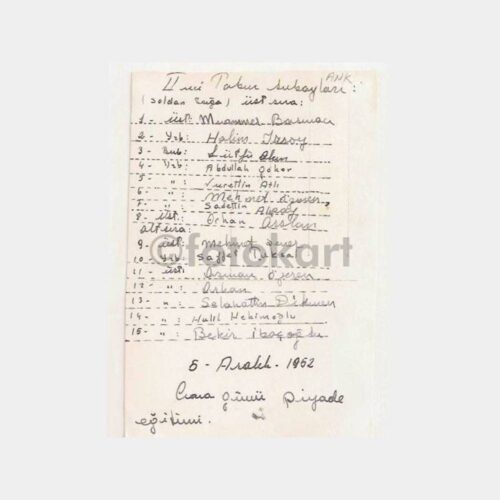 II nci Tabur subayları : ANK
(Soldan sağa) üst sıra:
1- üst: Muammer Basman
2- Yzb: Halim Ersoy
3- Bnb: Lütfü Akın
4- Yzb: Abdullah Göker
5 " : Nurettin Aslı
6- " : Mehmet
7- " : Sadettin Akbay
8- üst: Orhan Asslan
alt sıra:
9- üst: Mehmet
10- üst: Saffet
11- üst: Osman Özeren
12- " : Orhan
13- " : Selahattin Dikmen
14- " : Halil Hekimoğlu
15- " : Bekir
©fotokart
5 - Aralık - 1962
Cuma günü piyade
eğitimi.